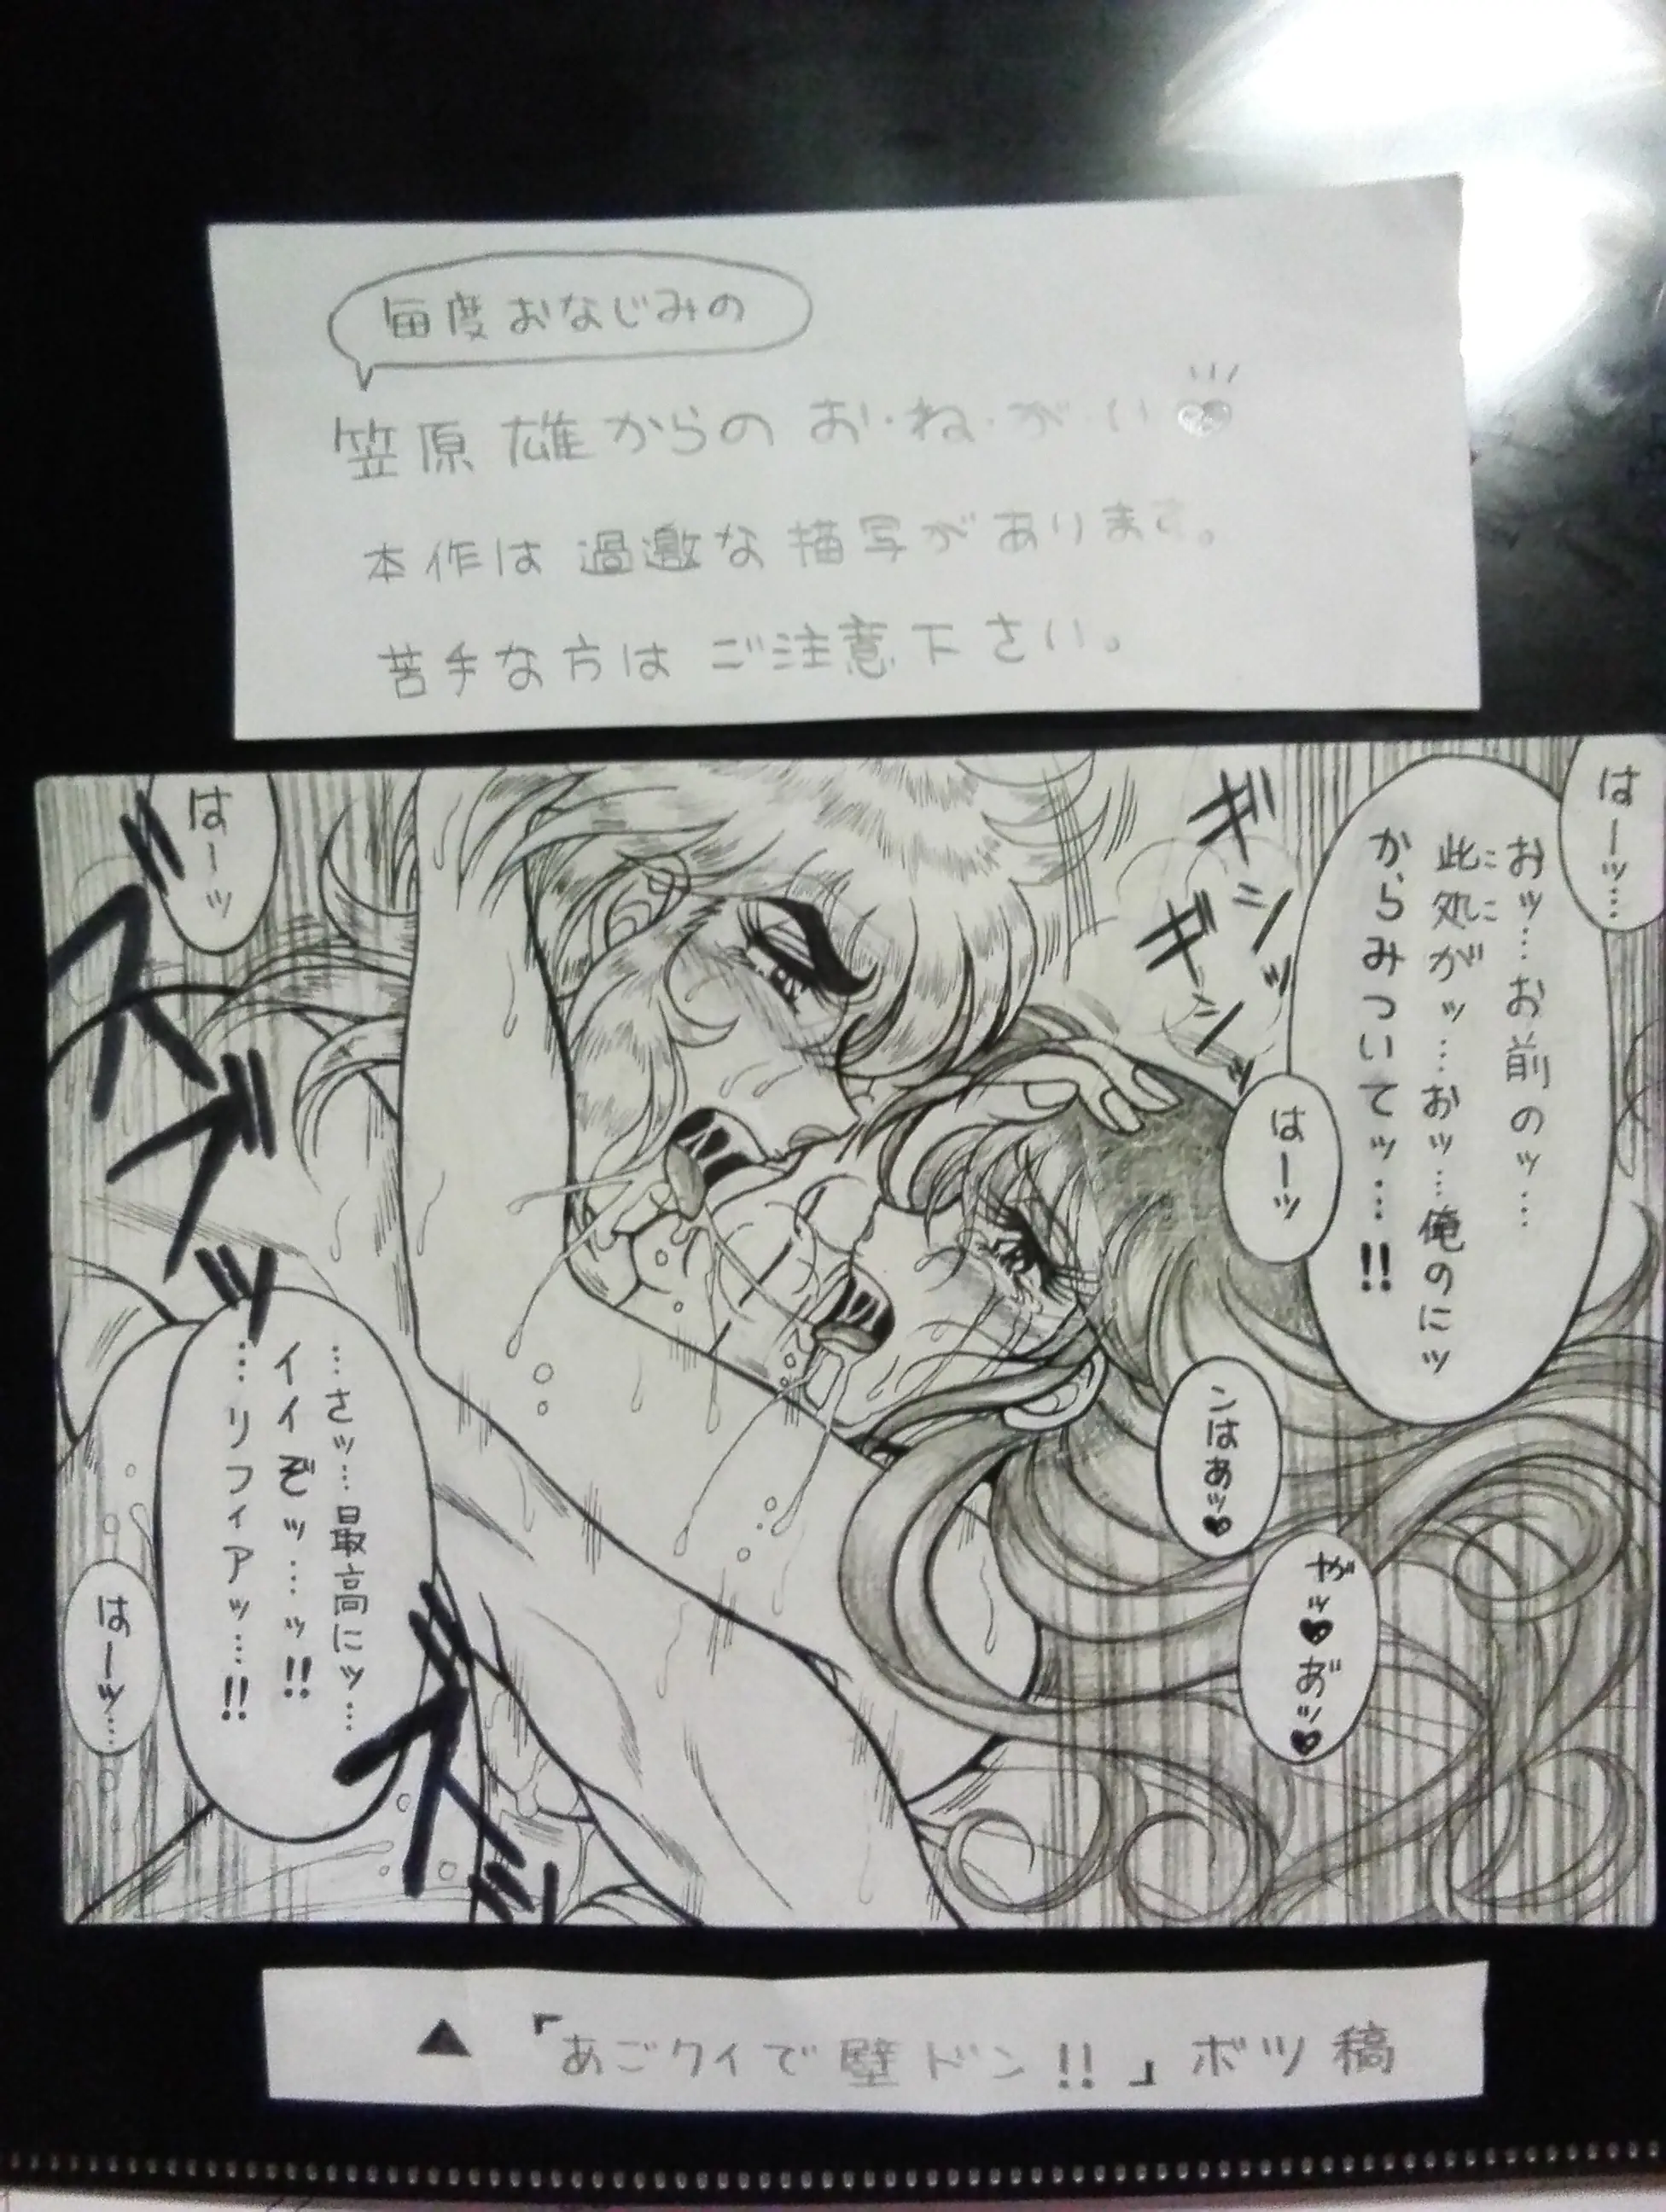 毎度おなじみの
笠原 雄からの お・ね・が・い
本作は 過激な描写があります。
苦手な方は ご注意下さい。
はーッ…
おッ…お前のッ…
此処がッ…おッ…俺のにッ
ここ
からみついてッ…!!
ギシッ
ギシッ
はーッ
はーッ
ズブッ
ンはぁッ♥
やッ♥あ゛ッ♥
…さッ…最高にッ…
イイぞッ…ッ!!
…リフィアッ…!!
はーッ…
ズッ
▲ 「あごクイで壁ドン!!」ボツ稿